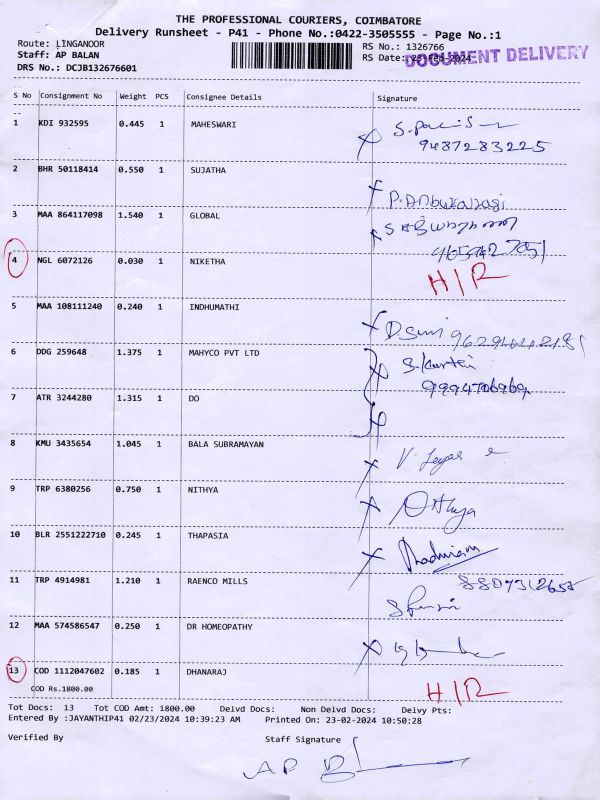 THE PROFESSIONAL COURIERS, COIMBATORE
Delivery Runsheet - P41 - Phone No.:0422-3505555 - Page No.:1
Route: LINGANOOR
Staff: AP BALAN
DRS No.: DCJB132676601
RS No.: 1326766
RS Date: 23-Feb-2024
DOCUMENT DELIVERY
S No Consignment No Weight PCS Consignee Details Signature
1 KDI 932595 0.445 1 MAHESWARI
9487283225
2 BHR 50118414 0.550 1 SUJATHA P. Anbukarasi
3 MAA 864117098 1.540 1 GLOBAL
4 NGL 6072126 0.030 1 NIKETHA H/R
5 MAA 108111240 0.240 1 INDHUMATHI
6 DDG 259648 1.375 1 MAHYCO PVT LTD
7 ATR 3244280 1.315 1 DO
8 KMU 3435654 1.045 1 BALA SUBRAMAYAN
9 TRP 6380256 0.750 1 NITHYA Nithya
10 BLR 2551222710 0.245 1 THAPASIA
11 TRP 4914981 1.210 1 RAENCO MILLS
12 MAA 574586547 0.250 1 DR HOMEOPATHY
13 COD 1112047602 0.185 1 DHANARAJ H/R
COD Rs.1800.00
Tot Docs: 13 Tot COD Amt: 1800.00 Delvd Docs: Non Delvd Docs: Delvy Pts:
Entered By :JAYANTHIP41 02/23/2024 10:39:23 AM Printed On: 23-02-2024 10:50:28
Verified By Staff Signature
AP B